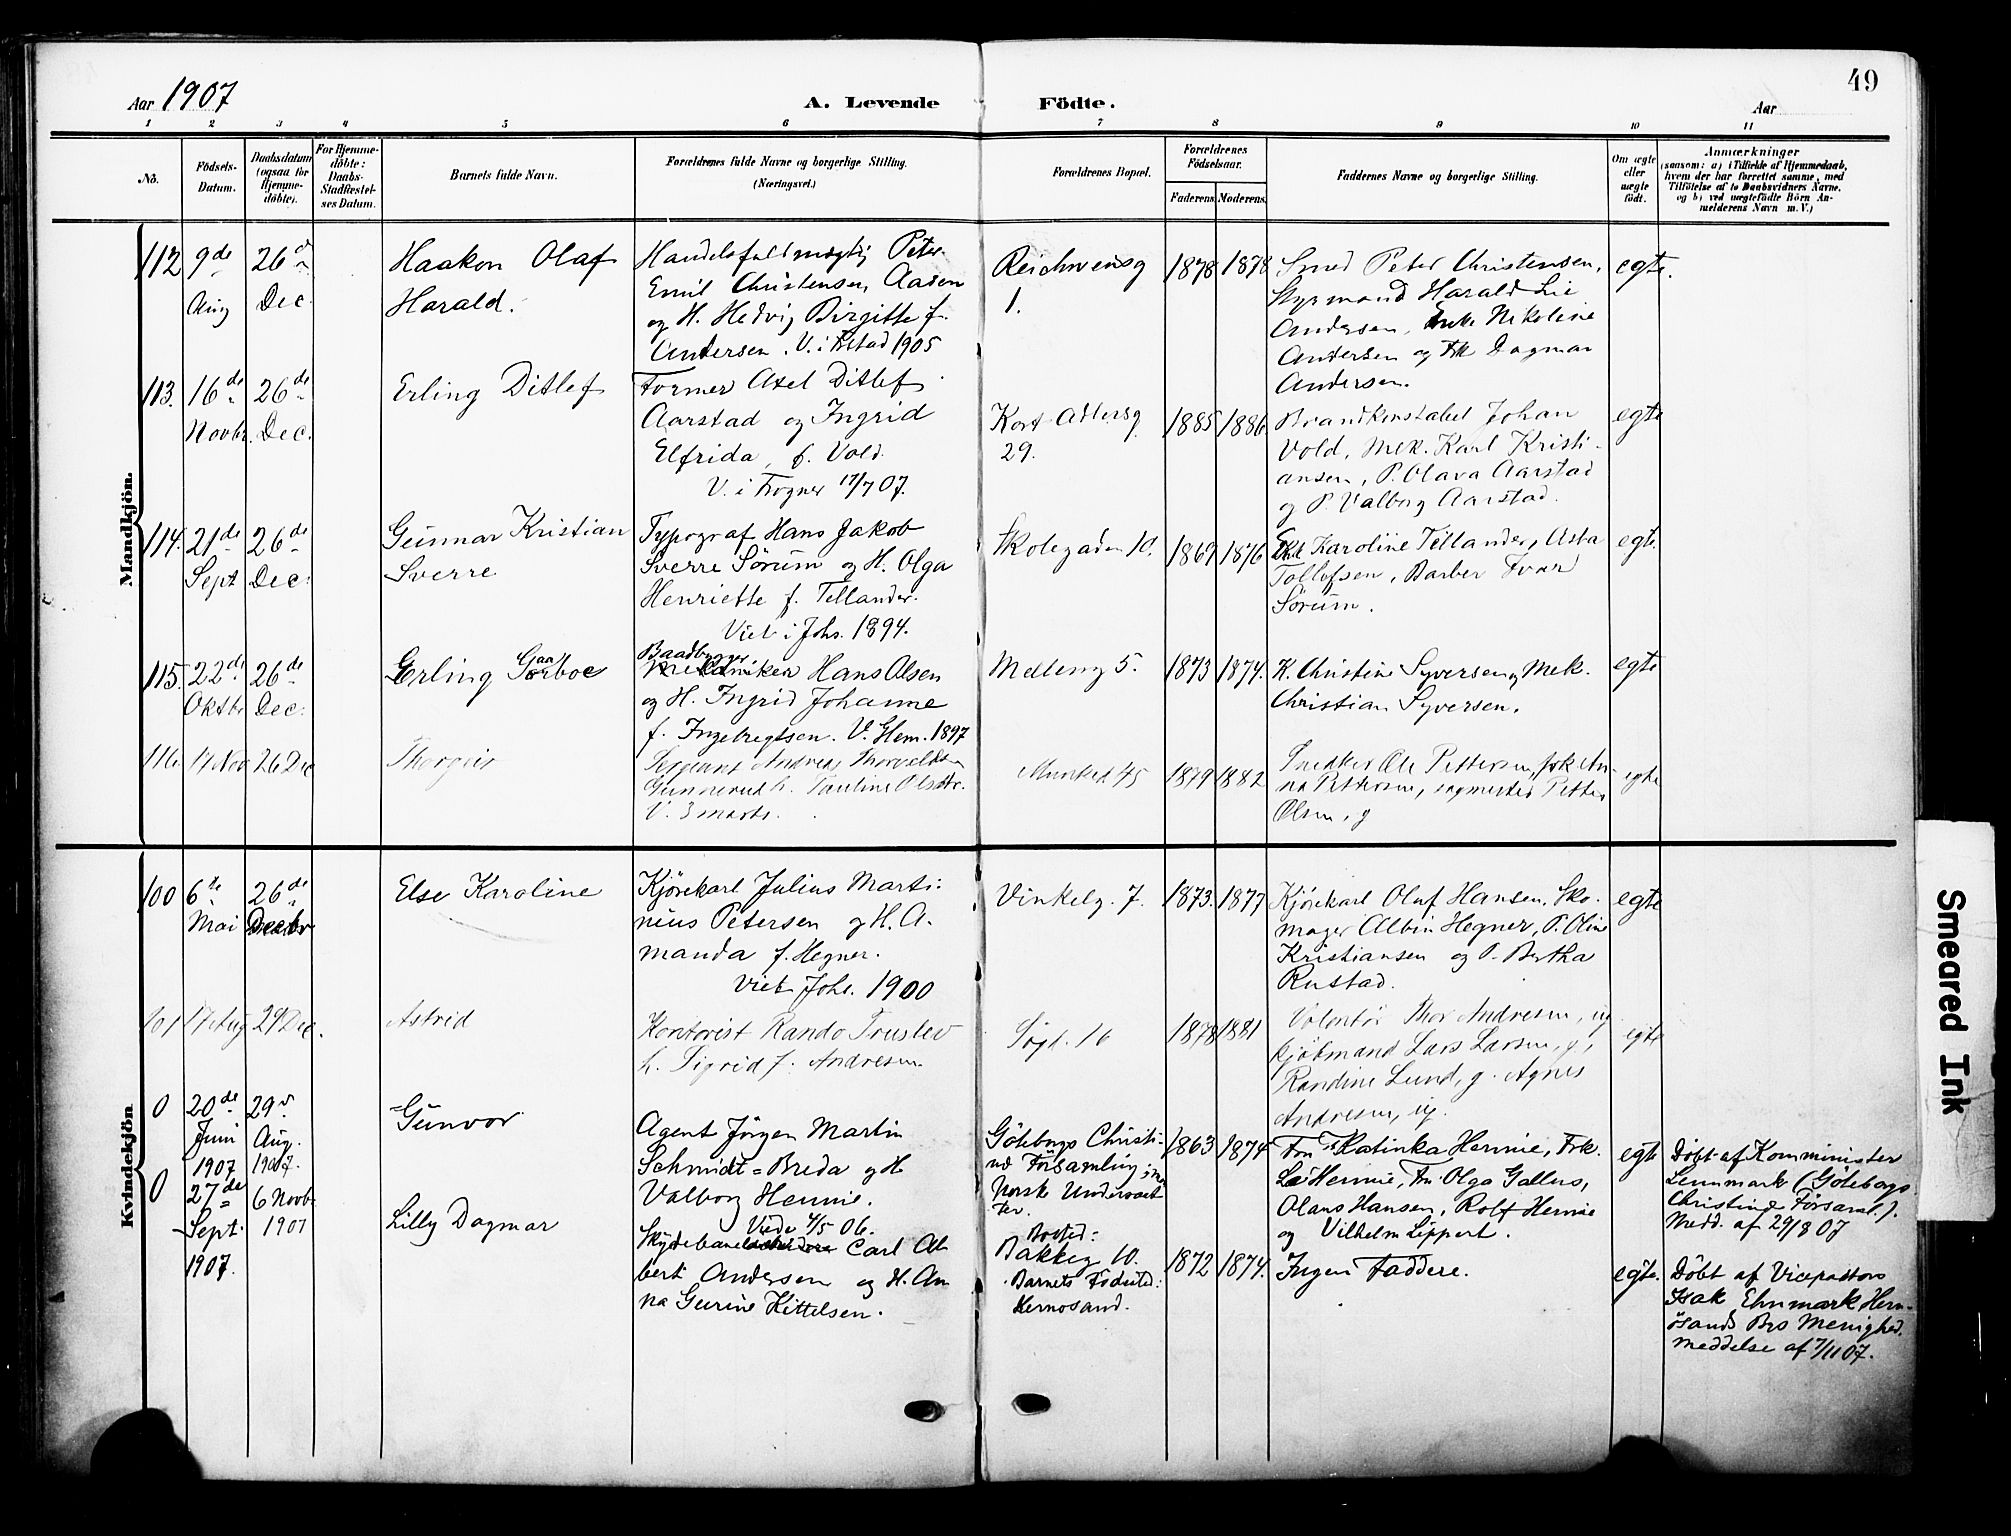 49
Aar 1907
A. Levende Födte.
Aar
1 2 3 4 5 6 7 8 9 10 11
No.
Födsels-Datum.
Daabsdatum (ogsaa for Hjemme-döbte).
For Hjemme-döbte: Daabs-Stadfæstel-ses Datum.
Barnets fulde Navn.
Forældrenes fulde Navne og borgerlige Stilling. (Næringsvei.)
Forældrenes Bopæl.
Forældrenes Födselsaar.
Faderens. Moderens.
Faddernes Navne og borgerlige Stilling.
Om ægte eller uægte födt.
Anmærkninger
(saasom: a) i Tilfælde af Hjemmedaab,
hvem der har forrettet samme, med
Tilföielse af to Daabsvidners Navne.
og b) ved uægtefödte Börn An-
melderens Navn m. V.)
Mandkjön.
112 9de Aug 26d Dec.
Haakon Olaf
Harald.
Handelsfuldmægtig Peter
Emil Christensen Aaden
og H. Hedvig Birgitte f.
Andersen. V. i Fstad 1905
Reichweinsg
1.
1878 1878
Smed Peter Christensen,
Styrmand Harald Lie
Andersen, Enke Nikoline
Andersen og Frk Dagmar
Andersen.
egte.
113. 16de Novbr. 26de Dec.
Erling Ditlef
Former Axel Ditlef
Aarstad og Ingrid
Elfrida f. Vold.
V. i Frogner 17/7 07.
Kort Adlersg
29.
1885 1886
Brandkonstabel Johan
Vold, Mek. Karl Kristi-
ansen, P. Olava Aarstad
og P. Valborg Aarstad.
egte
114. 21de Sept 26de Dec.
Gunnar Kristian
Sverre
Typograf Hans Jakob
Sverre Sörum og H. Olga
Henriette f. Tellander.
Viet i Johs. 1894.
Skolegaden 10.
1867 1876
Karoline Tellander, Asta
Tollefsen, Barber Ivar
Sörum.
egte.
115. 22de Oktbr 26de Dec.
Erling Gaarboe
Baadbygger
Hans Olsen
og H. Ingrid Johanne
f. Ingebregtsen. V. Glem. 1897
Melleng 5.
1873 1874.
K. Christine Syversen og Mek.
Christian Syversen.
egte
116. 17 Nov 26 Dec
Thorgeir
Sergeant Andreas Thorvaldsen
Gunnerud h. Pauline Olsdtr.
V. 3 marts.
Munked. 45
1879 1882
Snedker Ole Pettersen, frk An-
na Pettersen, sagmester Petter
Olsen, g
egte
Kvindekjön
100 6te Mai 26de Decbr
Else Karoline
Kjörekarl Julius Marti-
nius Petersen og H. A-
manda f. Hegner.
Viet Johs. 1900
Vinkelg. 7.
1873. 1877
Kjörekarl Olaf Hansen, Sko-
mager Albin Hegner, P. Oline
Kristiansen og P. Bertha
Rustad.
egte
101 17 Aug 29 Dec.
Astrid
Kontorist Rando Truslev
h. Sigrid f. Andresen
16
1878 1881
Volontör Thor Andresen, ug
kjöbmand Lars Larsen, g,
Randine Lund, g. Agnes
Andresen, ug.
egte
0 20de Juni 1907 29d Aug. 1907.
Gunvor
Agent Jörgen Martin
Schmidt=Breda og H
Valborg Hennie.
Viede 4/5 06.
Göteborgs Christi-
ne Församling,
Norske Undersaat-
ter.
1863 1874
Fru Katinka Hennie, Frk.
Hennie, Fru Olga Gallus,
Olaus Hansen, Rolf Hennie
og Vilhelm Lippert.
egte
Döbt af Komminister
Lennmark (Göteborgs
Christine Församl.).
Medd. af 29/8 07
0 27de Sept. 1907. 6 Novb. 1907
Lilly Dagmar
Carl Al-
bert Andersen og H. An
na Gurine Kittelsen.
Bosted:
Bakkeg 10.
Barnets Födested:
Hernosand.
1872 1874.
Ingen Faddere.
egte.
Döbt af Vicepastor
Isak Ehnmark Hern-
ösands Bys Menighed.
Meddelse af 7/11 07.
Smeared Ink